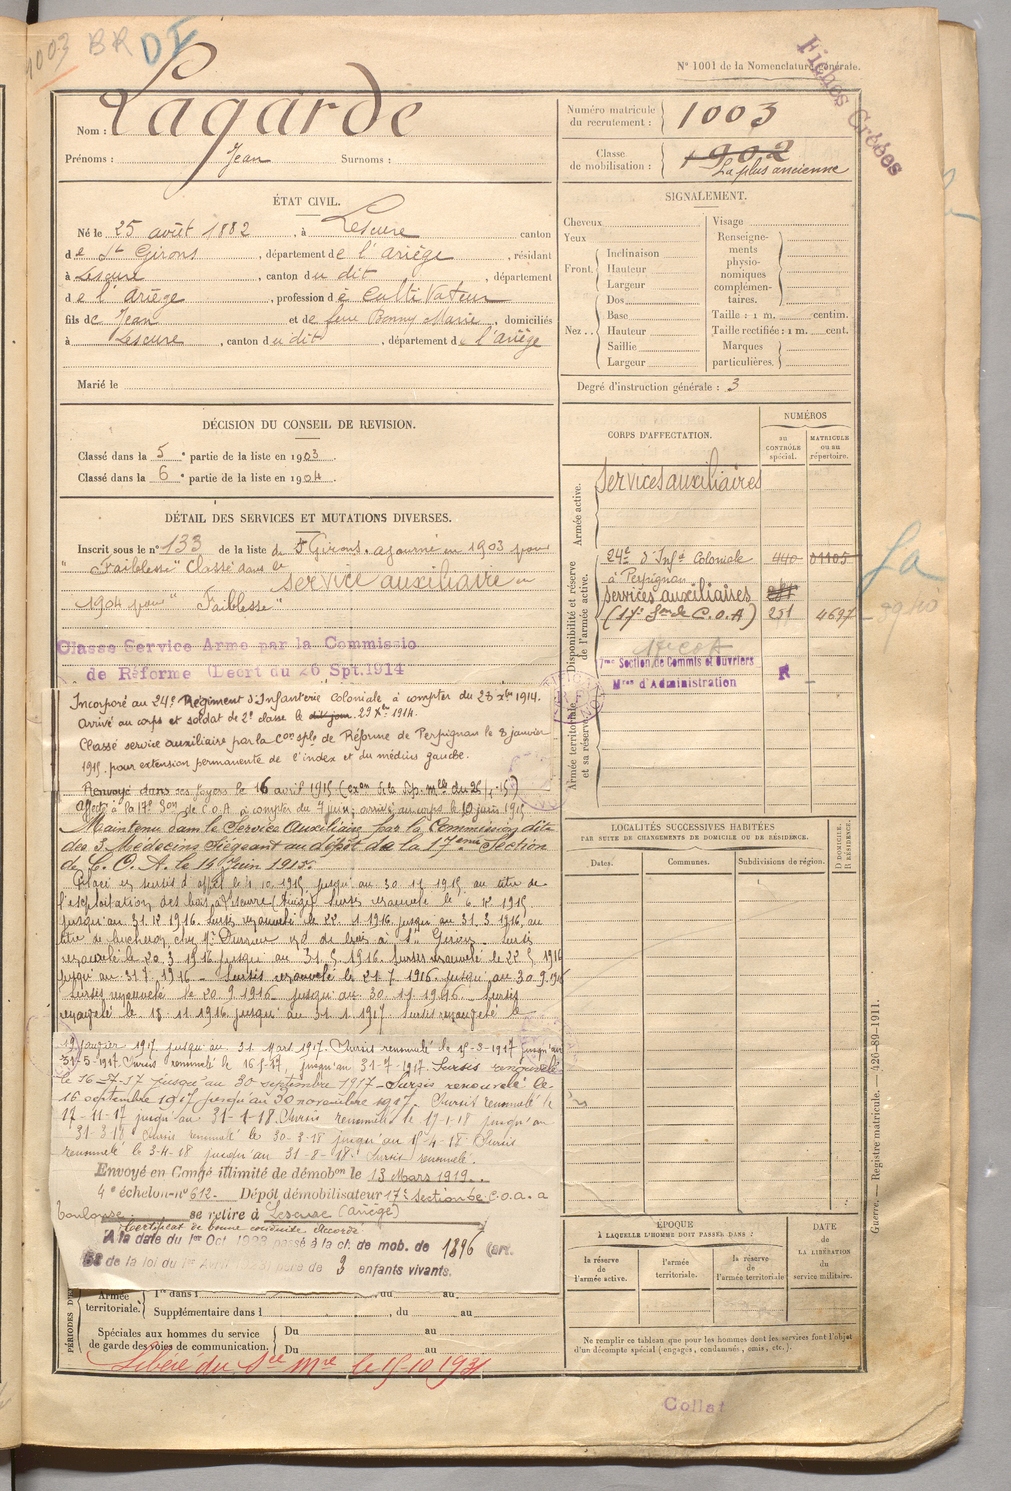 1003 BR DI
N° 1001 de la Nomenclature générale.
Fiches Créées
Nom : Lagarde
Prénoms : Jean Surnoms :
Numéro matricule du recrutement : 1003
Classe de mobilisation : 1902
La plus ancienne
ÉTAT CIVIL.
Né le 25 août 1882, à Lescure canton
de St Girons, département de l'Ariège, résidant
à Lescure, canton du dit, département
de l'Ariège, profession de Cultivateur
fils de Jean et de feue Bonny Marie, domiciliés
à Lescure, canton du dit, département de l'Ariège
Marié le
SIGNALEMENT.
Cheveux
Yeux
Front. Inclinaison
Hauteur
Largeur
Nez.. Dos
Base
Hauteur
Saillie
Largeur
Visage
Renseigne-
ments
physio-
nomiques
complémen-
taires.
Taille : 1 m. centim.
Taille rectifiée : 1 m. cent.
Marques
particulières.
Degré d'instruction générale : 3
DÉCISION DU CONSEIL DE REVISION.
Classé dans la 5e partie de la liste en 1903.
Classé dans la 6e partie de la liste en 1904.
DÉTAIL DES SERVICES ET MUTATIONS DIVERSES.
Inscrit sous le n° 133 de la liste de St Girons. ajourné en 1903 pour
"Faiblesse" Classé dans le service auxiliaire en
1904 pour "Faiblesse"
Classe Service Arme par la Commissio
de Réforme (Decrt du 26 Spt.1914
Incorporé au 24e Régiment d'Infanterie Coloniale à compter du 28 xbre 1914.
Arrivé au corps et soldat de 2e classe le dit jour 29 Xbre 1914.
Classé service auxiliaire par la Con sple de Réforme de Perpignan le 8 janvier
1915 pour extension permanente de l'index et du médius gauche.
Renvoyé dans ses foyers le 16 avril 1915
Affecté à la 17e Son de C.O.A à compter du 9 juin, arrivé au corps le 10 juin 1915
Maintenu dans le Service Auxiliaire par la Commission dite
des 3 Médecins siégeant au dépôt de la 17eme Section
de C.O.A. le 14 Juin 1915.
Placé en sursis d'appel le 4.10.1915 jusqu'au 30 11 1915 au titre de
l'exploitation des bois à Lescure (Ariège) Sursis renouvelé le 6.12.1915
jusqu'au 31.12.1916. Sursis renouvelé le 22.1.1916 jusqu'au 31.3.1916, au
titre de bucheron, chez Mr md de bois à St Girons. Sursis
renouvelé le 20 3 1916 jusqu'au 31.5.1916. Sursis renouvelé le 22 5 1916
jusqu'au 31 7 1916 - Sursis renouvelé le 21.7 1916 jusqu'au 30.9.1916
Sursis renouvelé le 20.9.1916 jusqu'au 30.11.1916. Sursis
renouvelé le 18.11.1916 jusqu'au 31.1.1917. Sursis renouvelé le
19 janvier 1917 jusqu'au 31 Mars 1917. Sursis renouvelé le 15-3-1917 jusqu'au
31-5-1917 Sursis renouvelé le 16.5.17, jusqu'au 31-7-1917. Sursis renouvelé
le 16-7-17 jusqu'au 30 septembre 1917 - Sursis renouvelé le
16 septembre 1917 jusqu'au 30 novembre 1917. Sursis renouvelé le
17-11-17 jusqu'au 31-1-18. Sursis renouvelé le 17-1-18 jusqu'au
31-3-18 Sursis renouvelé le 30-3-18 jusqu'au 15-4-18 Sursis
renouvelé le 3-4-18 jusqu'au 31-8-18. Sursis renouvelé.
Envoyé en Congé illimité de démobon le 13 Mars 1919..
4e échelon-n° 612. Dépôt démobilisateur 17e Section de C.O.A. a
Toulouse se retire à Lescure (Ariège)
Certificat de bonne conduite Accordé
A la date du 1er Oct passé à la cl. de mob. de 1896 (art.
58 de la loi du 1er Avril 1923) père de 3 enfants vivants.
Armée territoriale. 1° dans l , du au
Supplémentaire dans l , du au
Spéciales aux hommes du service de garde des voies de communication. Du au
Du au
Libéré du Sce Mre le 15-10 1931
CORPS D'AFFECTATION.
NUMÉROS
au contrôle spécial.
matricule ou au répertoire.
Armée active.
Services auxiliaires
Disponibilité et réserve de l'armée active.
24e d'Inft Coloniale 440 01105
à Perpignan
Services auxiliaires
(17e Son de C.O.A) 251 4697
17me Section de Commis et Ouvriers
Mres d'Administration R
Armée territoriale et sa réserve.
LOCALITÉS SUCCESSIVES HABITÉES
PAR SUITE DE CHANGEMENTS DE DOMICILE OU DE RÉSIDENCE.
Dates. Communes. Subdivisions de région.
D DOMICILE.
R RÉSIDENCE.
ÉPOQUE
À LAQUELLE L'HOMME DOIT PASSER DANS :
la réserve de l'armée active. l'armée territoriale. la réserve de l'armée territoriale
DATE de LA LIBÉRATION du service militaire.
Ne remplir ce tableau que pour les hommes dont les services font l'objet
d'un décompte spécial (engagés, condamnés, omis, etc.).
Guerre. — Registre matricule. — 426-89-1911.
Collat